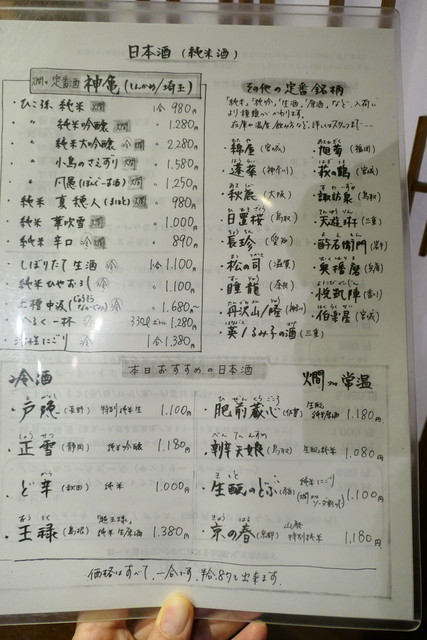 日本酒 (純米酒)
燗の定番酒 神亀 (しんかめ/埼玉)
・ひこ孫 純米 燗 1合 980円
〃 純米吟醸 燗 1.280円
〃 純米大吟醸 冷燗 2.280円
〃 小鳥のさえずり 燗 1.580円
〃 1.250円
・純米 真穂人 (まほと) 燗 980円
・純米 華吹雪 燗 1.000円
・純米 辛口 冷燗 890円
・しぼりたて 生酒 冷 1合 1.100円
・純米ひやおろし 冷 1.100円
・上槽中汲 冷 1.680円~
一杯 1.280円
にごり 冷 1合 1.380円
その他の定番銘柄
「純米」「純吟」「生酒」「原酒」など、入荷により種類がかわります。
・綿屋 (宮城)
・旭菊 (福岡)
・蓬莱 (神奈川)
・萩の鶴 (宮城)
・秋鹿 (大阪)
・諏訪泉 (鳥取)
・日置桜 (鳥取)
・天遊琳 (三重)
・長珍 (愛知)
・酉与右衛門 (岩手)
・松の司 (滋賀)
・奥播磨 (兵庫)
・睡龍 (奈良)
・悦凱陣 (香川)
・丹沢山/隆 (神奈川)
・伯楽星 (宮城)
・英/るみ子の酒 (三重)
本日おすすめの日本酒
冷酒
燗 常温
・戸隠 (長野) 特別純米生 1.100円
・肥前蔵心 (佐賀) 生酛 純米原酒 1.180円
・正雪 (静岡) 純米吟醸 1.180円
・辨天娘 (鳥取) 生酛純米 1.080円
・ど辛 (秋田) 純米 1.000円
・生酛のどぶ (奈良) 純米にごり 1.100円
・王禄 (島根) 「超王祿」 純米生原酒 1.380円
・京の春 (京都) 山廃 特別純米 1.180円
価格はすべて、一合です。半合、8勺も出来ます。